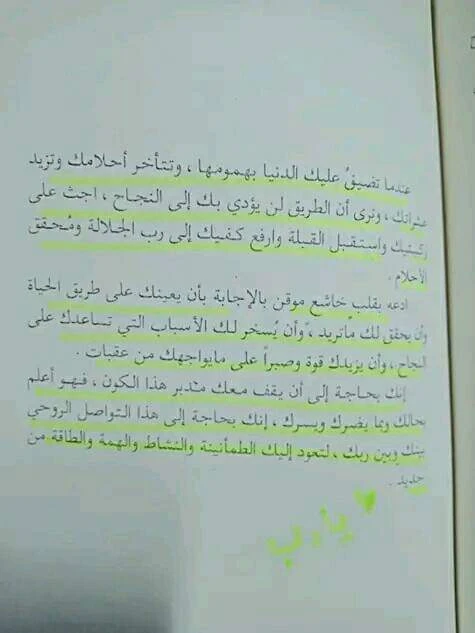 عندما تضيقُ عليك الدنيا بهمومها ، وتتأخر أحلامك وتزيد
عثراتك ، وترى أن الطريق لن يؤدي بك إلى النجاح ، اجث على
ركبتيك واستقبل القبلة وارفع كفيك إلى رب الجلالة ومُحقق
الأحلام .
ادعه بقلبٍ خاشع موقن بالإجابة بأن يعينك على طريق الحياة
وأن يحقق لك ماتريد ، وأن يُسخر لك الأسباب التي تساعدك على
النجاح ، وأن يزيدك قوة وصبراً على مايواجهك من عقبات .
إنك بحاجة إلى أن يقف معك مدبر هذا الكون ، فهو أعلم
بحالك وبما يضرك ويسرك ، إنك بحاجة إلى هذا التواصل الروحي
بينك وبين ربك ، لتعود إليك الطمأنينة والنشاط والهمة والطاقة من
جديد .
يارب